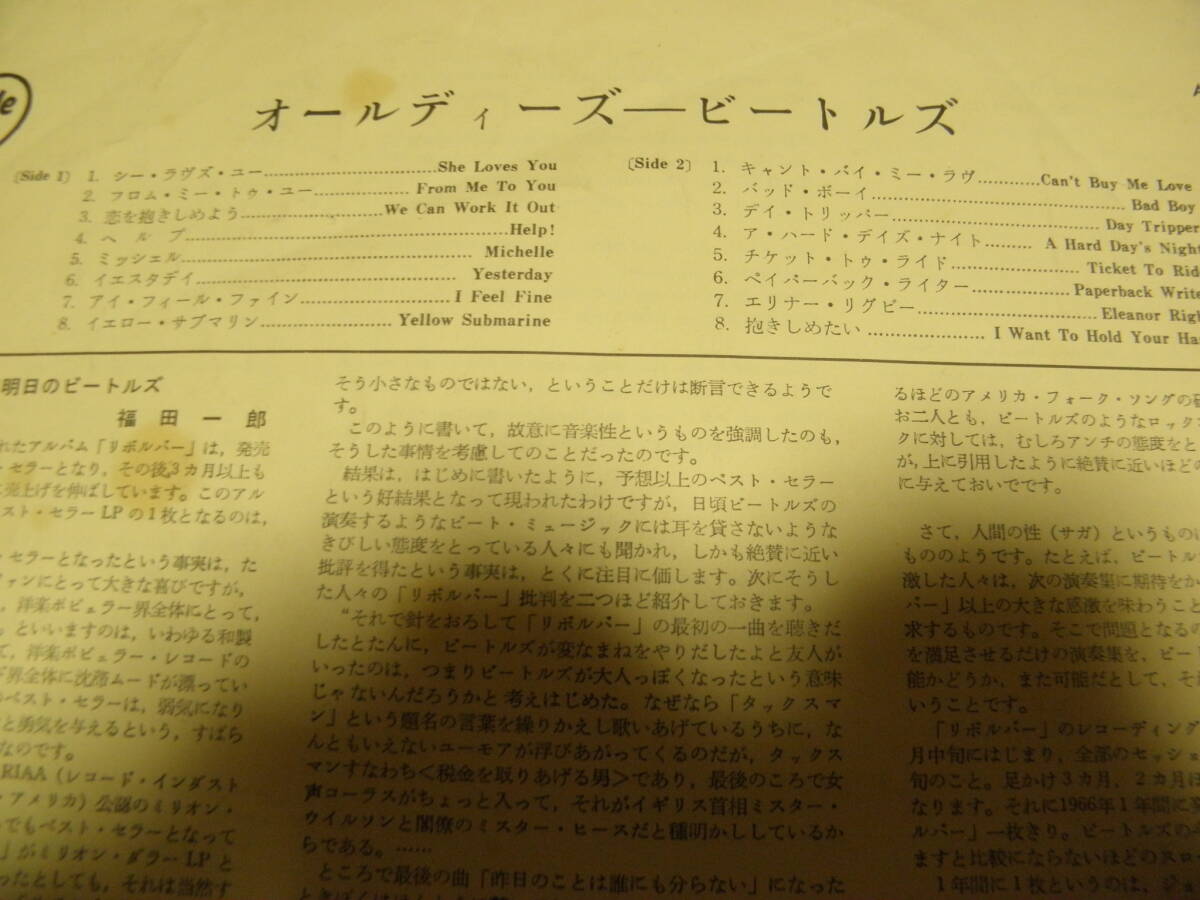 オールディーズ──ビートルズ
〔Side 1〕 1. シー・ラヴズ・ユー She Loves You
2. フロム・ミー・トゥ・ユー From Me To You
3. 恋を抱きしめよう We Can Work It Out
4. ヘルプ Help!
5. ミッシェル Michelle
6. イエスタデイ Yesterday
7. アイ・フィール・ファイン I Feel Fine
8. イエロー・サブマリン Yellow Submarine
〔Side 2〕 1. キャント・バイ・ミー・ラヴ Can't Buy Me Love
2. バッド・ボーイ Bad Boy
3. デイ・トリッパー Day Tripper
4. ア・ハード・デイズ・ナイト A Hard Day's Night
5. チケット・トゥ・ライド Ticket To Rid
6. ペイパーバック・ライター Paperback Write
7. エリナー・リグビー Eleanor Rig
8. 抱きしめたい I Want To Hold Your Ha
明日のビートルズ
福田一郎
れたアルバム「リボルバー」は，発売
・セラーとなり，その後3カ月以上も
売上げを伸ばしています。このアル
スト・セラーLPの1枚となるのは，
・セラーとなったという事実は，た
ァンにとって大きな喜びですが，
，洋楽ポピュラー界全体にとって，
。といいますのは，いわゆる和製
て，洋楽ポピュラー・レコードの
ド界全体に沈滞ムードが漂ってい
のベスト・セラーは，弱気になり
と勇気を与えるという，すばら
なのです。
RIAA（レコード・インダスト
・アメリカ）公認のミリオン・
でもベスト・セラーとなって
」がミリオン・ダラーLPと
ったとしても，それは当然す
そう小さなものではない，ということだけは断言できるようで
す。
このように書いて，故意に音楽性というものを強調したのも，
そうした事情を考慮してのことだったのです。
結果は，はじめに書いたように，予想以上のベスト・セラー
という好結果となって現われたわけですが，日頃ビートルズの
演奏するようなビート・ミュージックには耳を貸さないような
きびしい態度をとっている人々にも聞かれ，しかも絶賛に近い
批評を得たという事実は，とくに注目に価します。次にそうし
た人々の「リボルバー」批判を二つほど紹介しておきます。
“それで針をおろして「リボルバー」の最初の一曲を聴きだ
したとたんに，ビートルズが変なまねをやりだしたよと友人が
いったのは，つまりビートルズが大人っぽくなったという意味
じゃないんだろうかと考えはじめた。なぜなら「タックスマ
ン」という題名の言葉を繰りかえし歌いあげているうちに，な
んともいえないユーモアが浮びあがってくるのだが，タックス
マンすなわち＜税金を取りあげる男＞であり，最後のころで女
声コーラスがちょっと入って，それがイギリス首相ミスター・
ウイルソンと閣僚のミスター・ヒースだと種明かししているか
らである。……
ところで最後の曲「昨日のことは誰にも分らない」になった
るほどのアメリカ・フォーク・ソングの
お二人とも，ビートルズのようなロック
クに対しては，むしろアンチの態度をと
が，上に引用したように絶賛に近いほどの
に与えておいでです。
さて，人間の性（サガ）というものは
もののようです。たとえば，ビートル
激した人々は，次の演奏集に期待をか
バー」以上の大きな感激を味わうこと
求するものです。そこで問題となるの
を満足させるだけの演奏集を，ビート
能かどうか，また可能だとして，それ
いうことです。
「リボルバー」のレコーディング
月中旬にはじまり，全部のセッショ
旬のこと。足かけ3カ月，2カ月
なります。それに1966年1年間に
ルバー」一枚きり。ビートルズの
ますと比較にならないほどのスロー
1年間に1枚というのは，